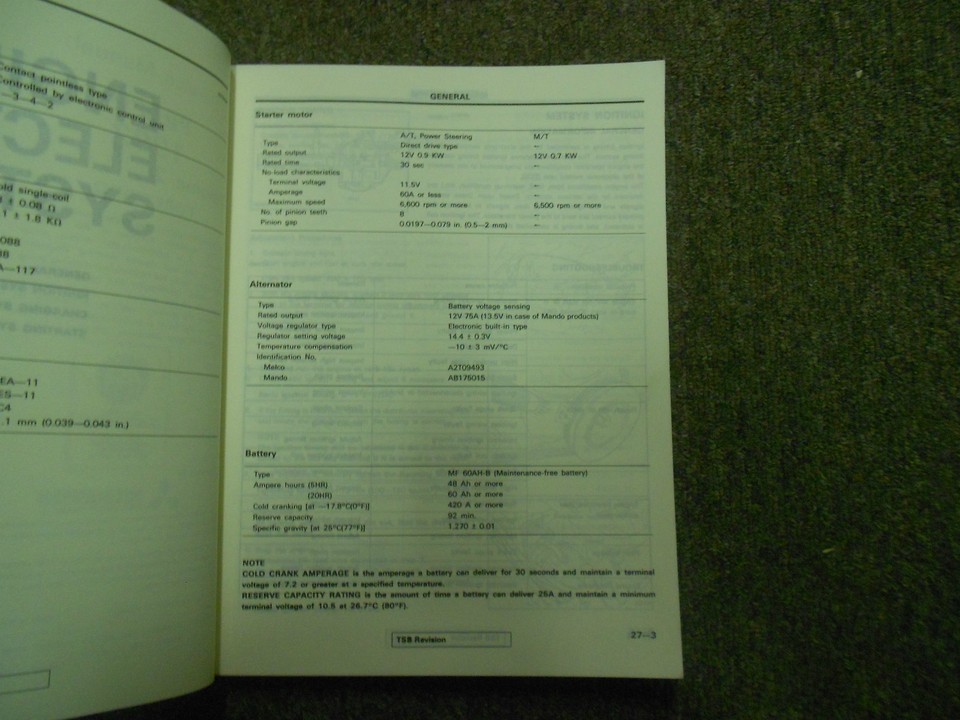 Contact pointless type
Controlled by electronic control unit
—3—4—2
old single-coil
± 0.08 Ω
1 ± 1.8 KΩ
088
A—117
EA—11
ES—11
C4
.1 mm (0.039—0.043 in.)
GENERAL
Starter motor
A/T, Power Steering M/T
Type Direct drive type —
Rated output 12V 0.9 KW 12V 0.7 KW
Rated time 30 sec —
No-load characteristics
Terminal voltage 11.5V —
Amperage 60A or less —
Maximum speed 6,600 rpm or more 6,500 rpm or more
No. of pinion teeth 8 —
Pinion gap 0.0197—0.079 in. (0.5—2 mm) —
Alternator
Type Battery voltage sensing
Rated output 12V 75A (13.5V in case of Mando products)
Voltage regulator type Electronic built-in type
Regulator setting voltage 14.4 ± 0.3V
Temperature compensation —10 ± 3 mV/°C
Identification No.
Melco A2T09493
Mando AB175015
Battery
Type MF 60AH-B (Maintenance-free battery)
Ampere hours (5HR) 48 Ah or more
(20HR) 60 Ah or more
Cold cranking [at —17.8°C(0°F)] 420 A or more
Reserve capacity 92 min.
Specific gravity [at 25°C(77°F)] 1.270 ± 0.01
NOTE
COLD CRANK AMPERAGE is the amperage a battery can deliver for 30 seconds and maintain a terminal
voltage of 7.2 or greater at a specified temperature.
RESERVE CAPACITY RATING is the amount of time a battery can deliver 25A and maintain a minimum
terminal voltage of 10.5 at 26.7°C (80°F).
TSB Revision
27—3